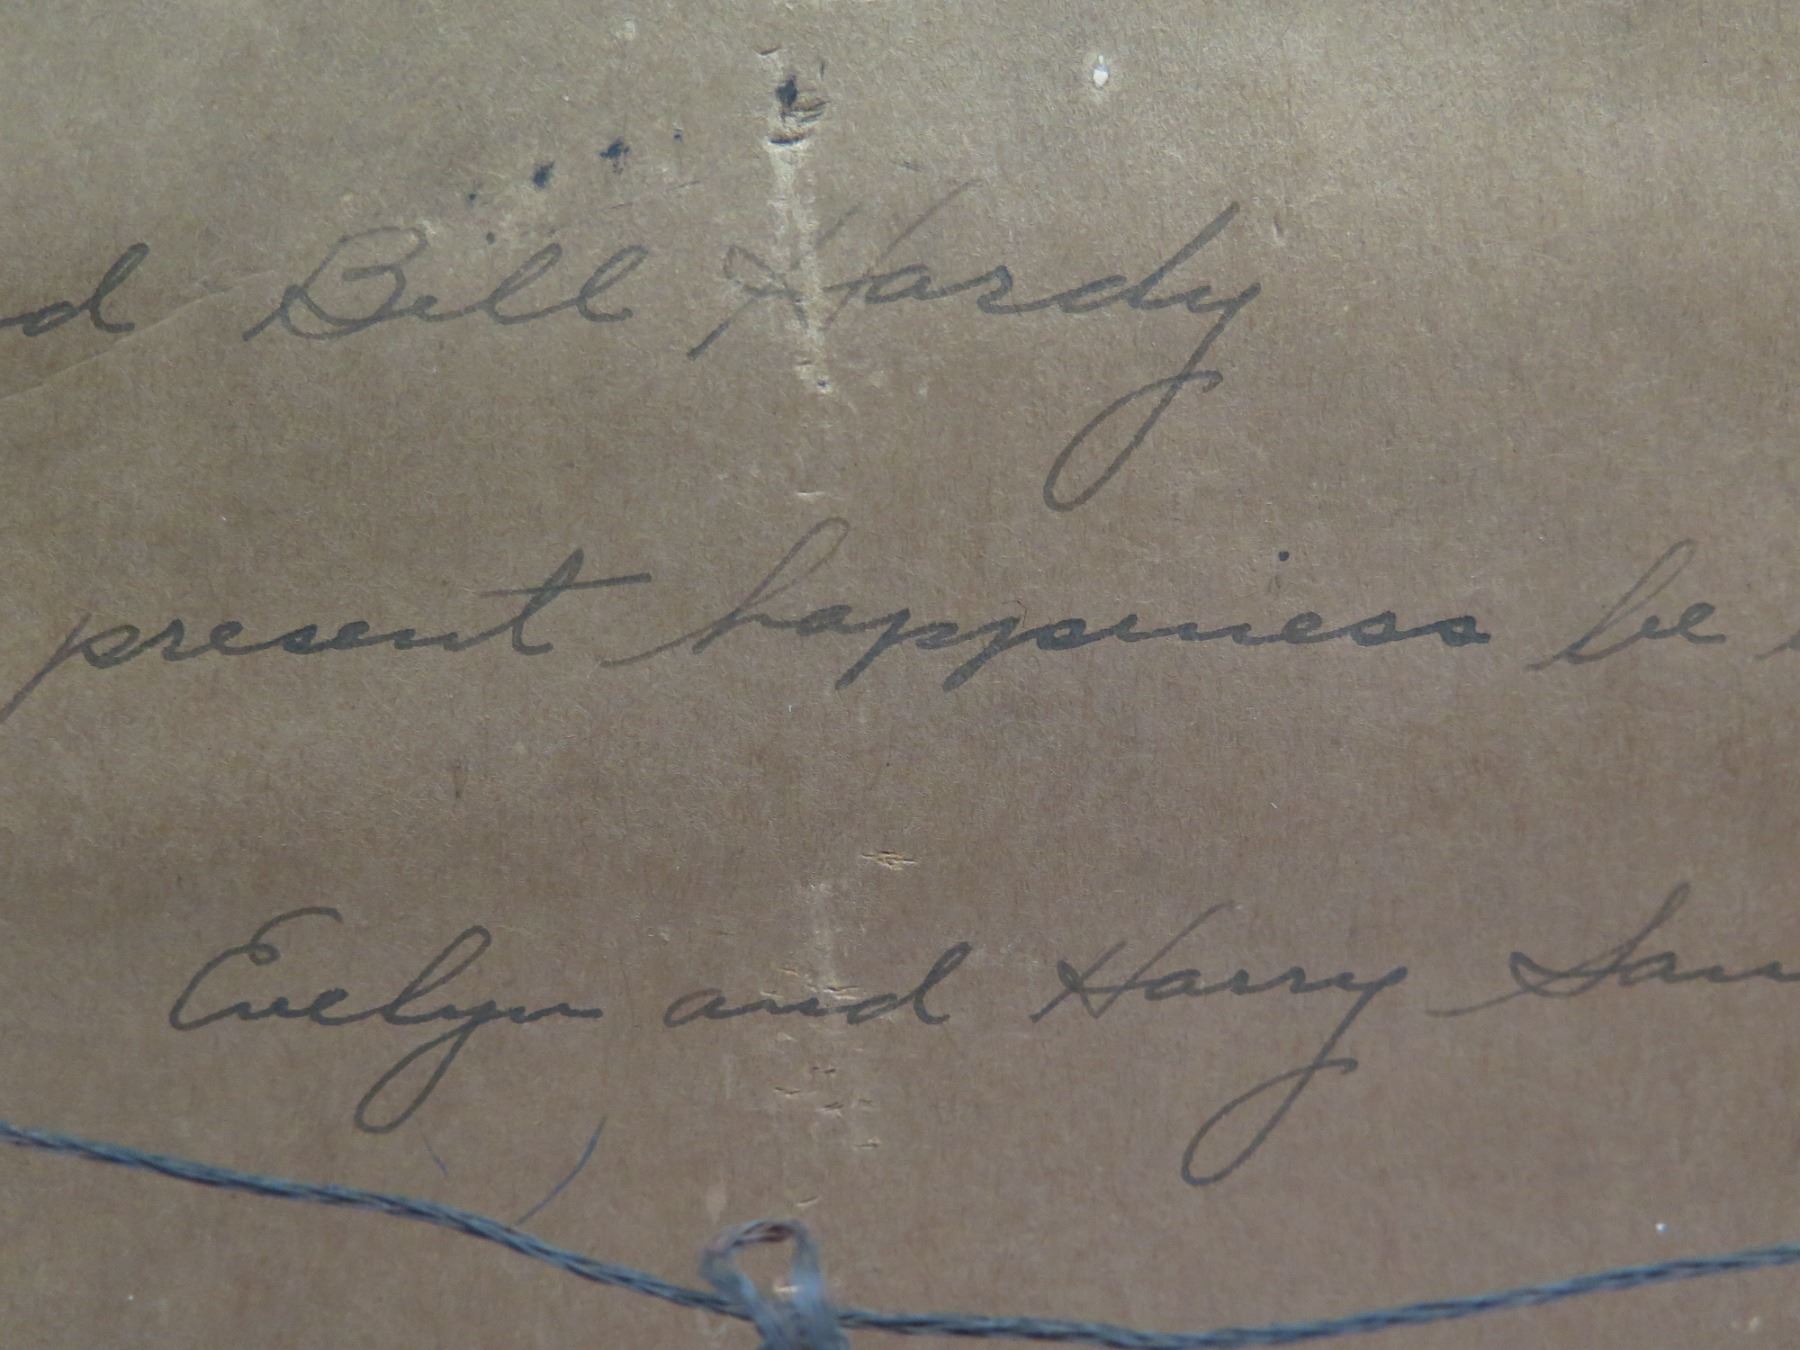 d Bill Hardy
present happiness be
Evelyn and Harry